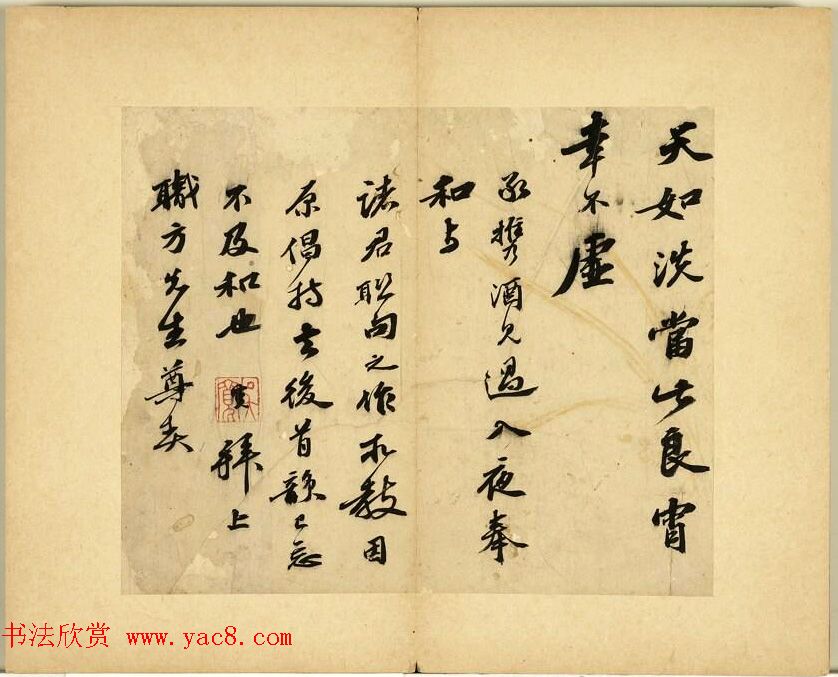 天如洗當此良宵
幸不虛
承携酒見過入夜奉
和与
諸君聯句之作求教因
原倡持去後首韻已忘
不及和也 寬 拜上
職方先生尊契
书法欣赏 www.yac8.com